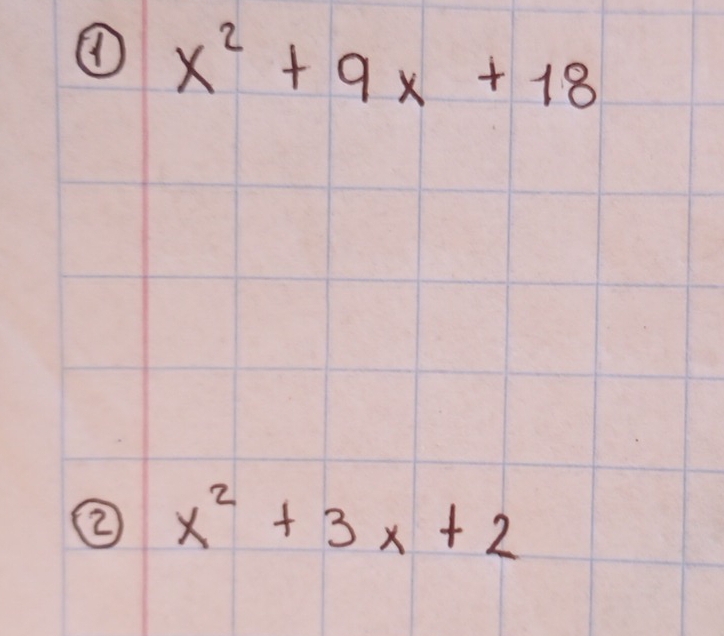 ① x² + 9x + 18
② x² + 3x + 2